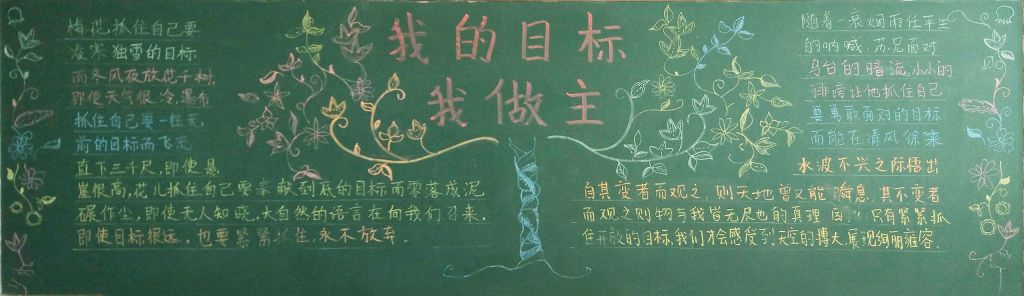 我的目标
我做主
梅花抓住自己要
凌寒独雪的目标
而冬风夜放花千树
即使天气很冷.瀑布
抓住自己要一往无
前的目标而飞流
直下三千尺,即使悬
崖很高,花儿抓住自己要奉献到底的目标而零落成泥
碾作尘,即使无人知晓.大自然的语言在向我们召来,
即使目标很远,也要紧紧抓住,永不放弃.
随着一蓑烟雨任平生
的呐喊,苏轼面对
乌台的暗流,小小的
诽谤让他抓住自己
要勇敢面对的目标
而能在清风徐来
水波不兴之际悟出
自其变者而观之,则天地曾不能瞬息,其不变者
而观之则物与我皆无尽也的真理因 只有紧紧抓
住开放的目标,我们才会感受到天空的博大,展现绚丽雍容.